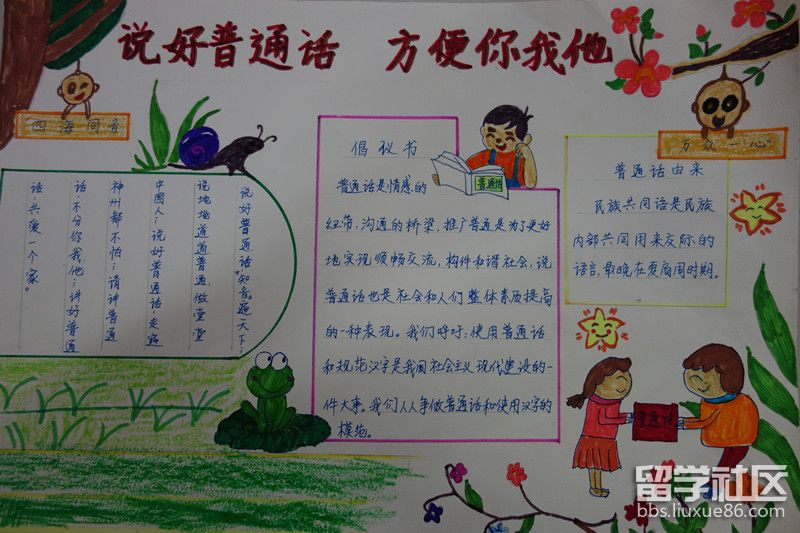 说好普通话 方便你我他
四海同音
说好普通话。知音遍天下;
说地地道道普通做堂堂
中国人;说好普通话走遍
神州都不怕;请讲普通
话不分你我他;讲好普通
话共爱一个家。
倡议书
普通话是情感的
纽带、沟通的桥梁,推广普通是为了更好
地实现顺畅交流,构件和谐社会,说
普通话也是社会和人们整体素质提高
的一种表现。我们呼吁:使用普通话
和规范汉字是我国社会主义现代建设的一
件大事。我们人人争做普通话和使用汉字的
模范。
普通话
万众一心
普通话由来
民族共同话是民族
内部共同用来交际的
语言,最晚在夏商周时期。
普通话
留学社区
bbs.liuxue86.com